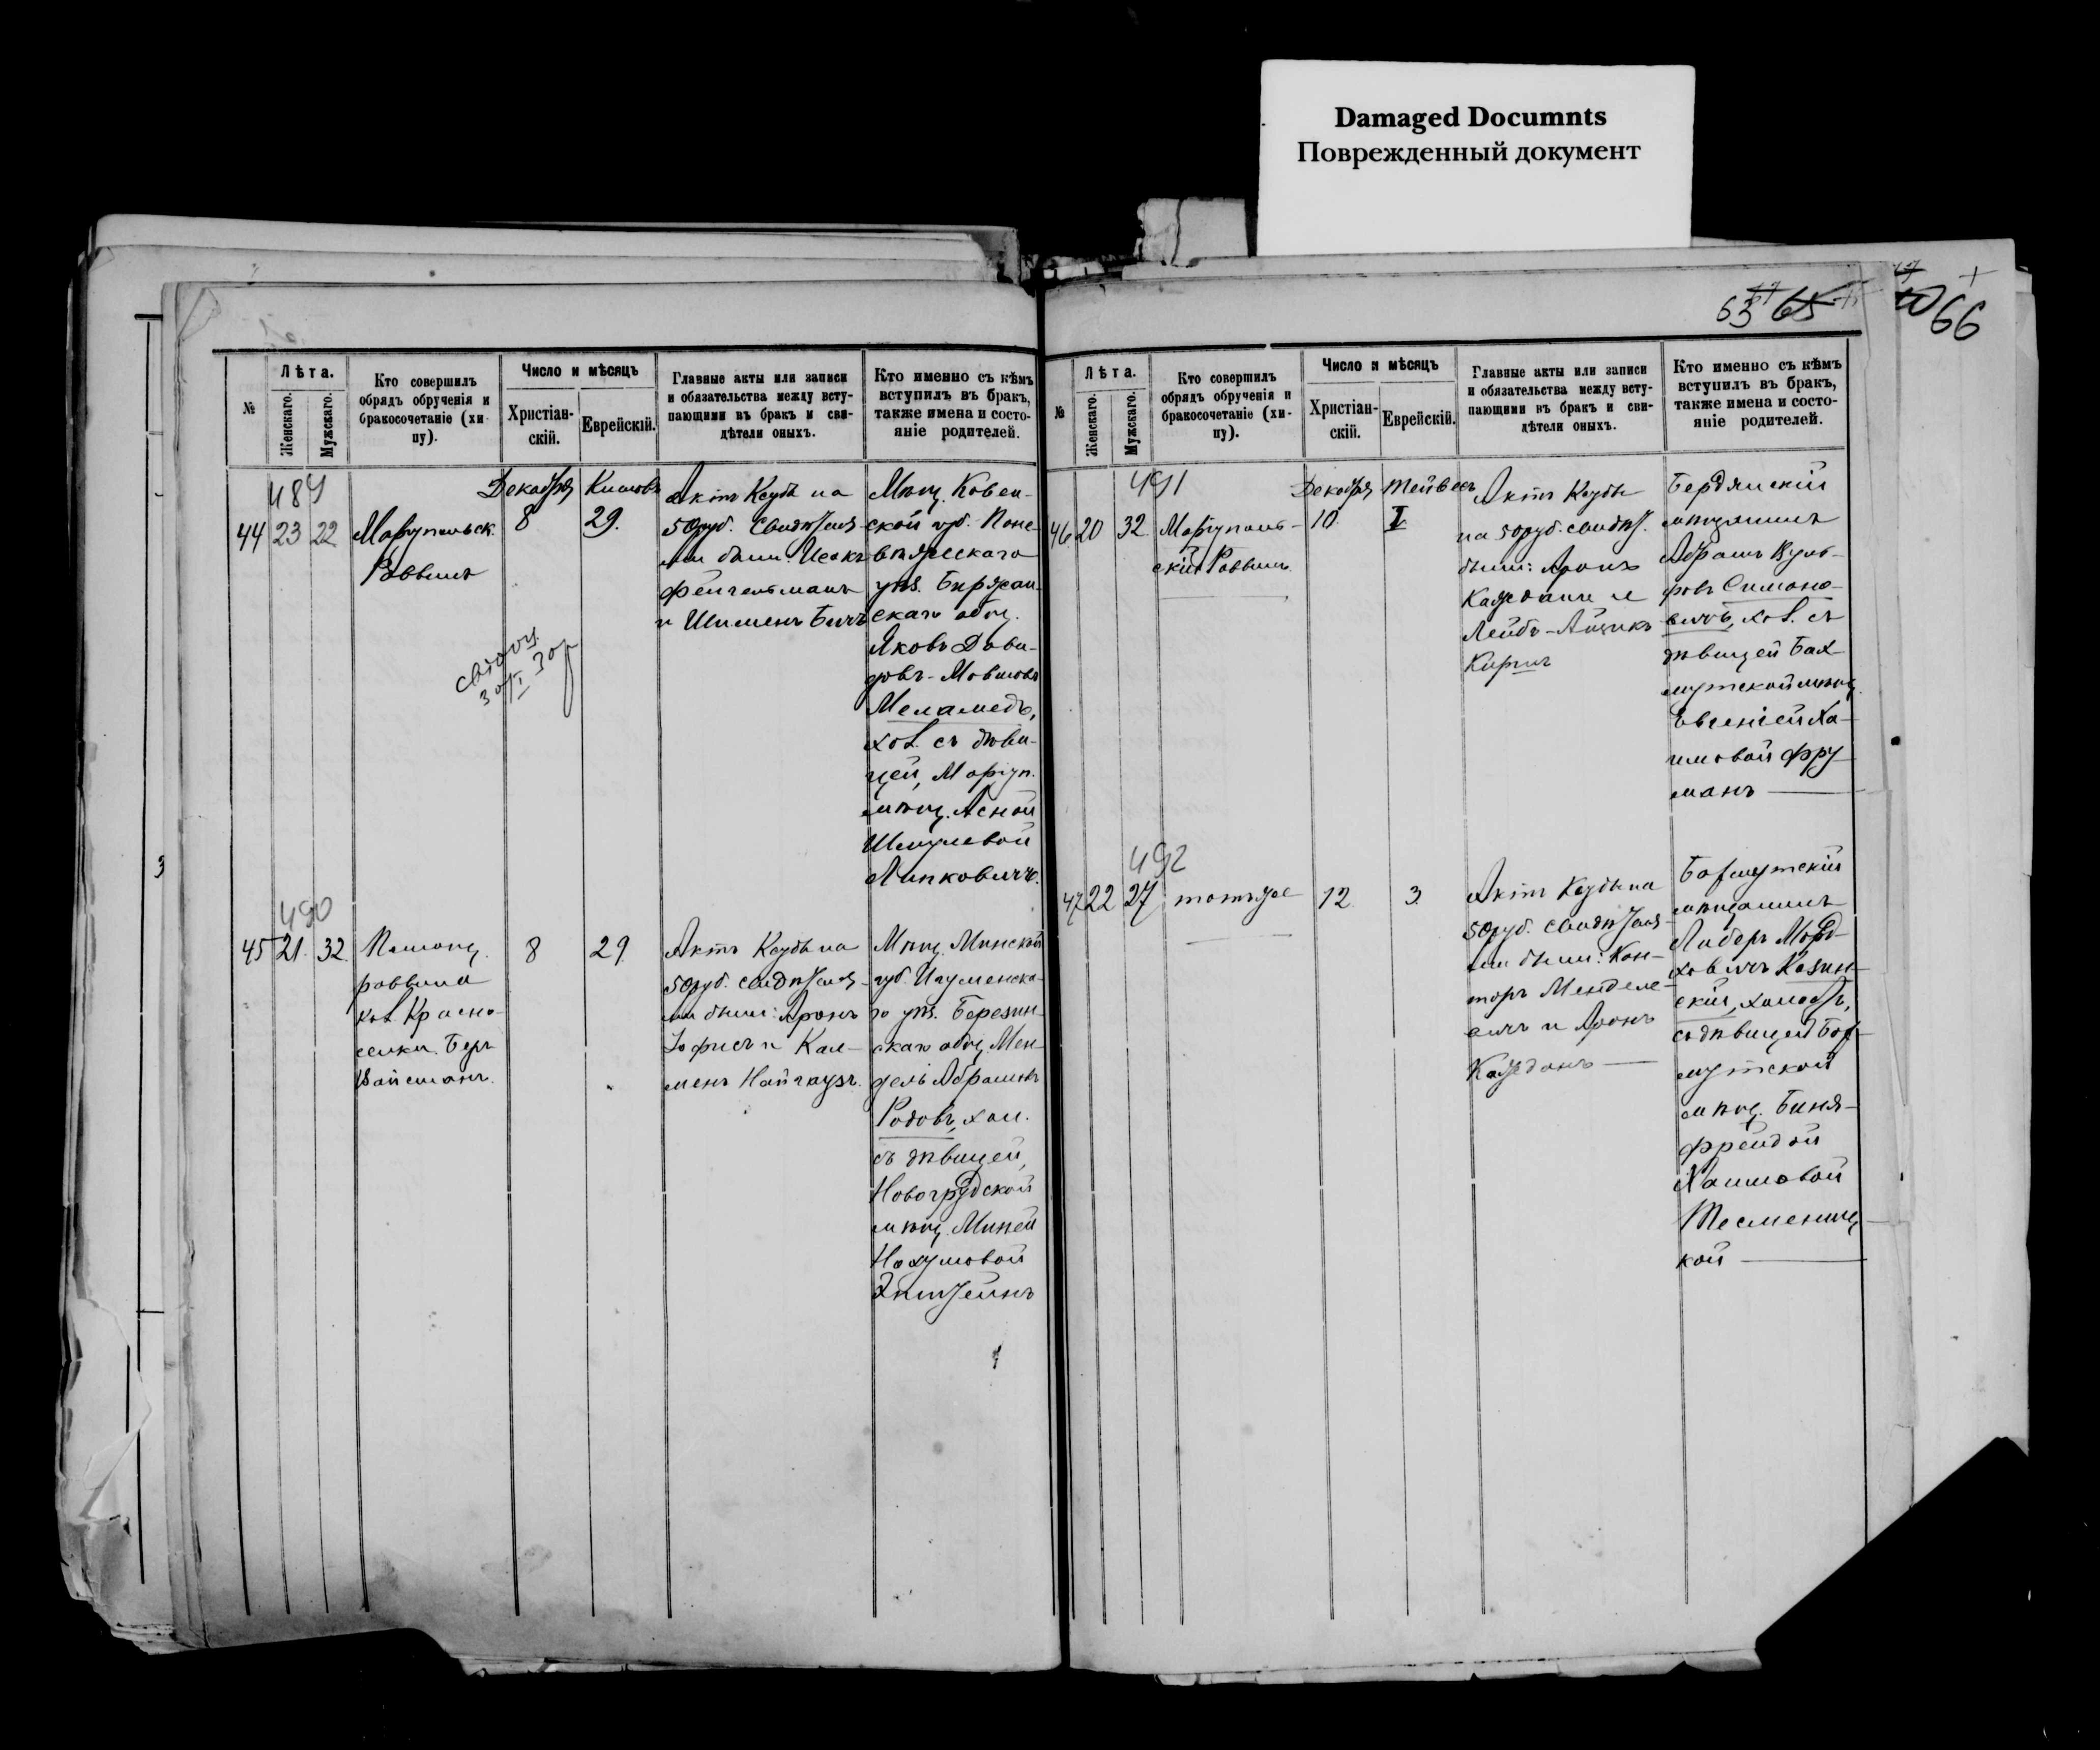 Damaged Documnts
Поврежденный документ
63 65
66
№
Лѣта.
Женскаго.
Мужскаго.
Кто совершилъ
обрядъ обрученія и
бракосочетаніе (хи-
пу).
Число и мѣсяцъ
Христіан-
скій.
Еврейскій.
Главные акты или записи
и обязательства между всту-
пающими въ бракъ и сви-
дѣтели оныхъ.
Кто именно съ кѣмъ
вступилъ въ бракъ,
также имена и состо-
яніе родителей.
489
44 23 22
Маріупольск.
Раввинъ
Декабря
8
Кислевъ
29.
Актъ Ксубы на
50 руб. Свидѣтеля-
ми были: Исакъ
Фейгельманъ
и Шименъ Бичъ
Мѣщ. Ковен-
ской губ. Поне-
вѣжскаго
уѣз. Биржан-
скаго общ.
Яковъ Дави-
довъ-Мовшовъ
Меламедъ,
хол. съ дѣви-
цей, Маріуп.
мѣщ. Асной
Шмулевой
Липковичъ.
490
45 21. 32.
Помощ.
раввина
кол. Красно-
селки Беръ
Вайсманъ.
8
29
Актъ Ксубы на
50 руб. свидѣтеля-
ми были: Аронъ
Іофисъ и Кал-
менъ Найгаузъ.
Мѣщ. Минской
губ. Игуменска-
го уѣз. Березин-
скаго общ. Мен-
дель Абрамовъ
Родовъ, хол.
съ дѣвицей,
Новогрудской
мѣщ. Миней
Нахумовой
Эпштейнъ
№
Лѣта.
Женскаго.
Мужскаго.
Кто совершилъ
обрядъ обрученія и
бракосочетаніе (хи-
пу).
Число и мѣсяцъ
Христіан-
скій.
Еврейскій.
Главные акты или записи
и обязательства между всту-
пающими въ бракъ и сви-
дѣтели оныхъ.
Кто именно съ кѣмъ
вступилъ въ бракъ,
также имена и состо-
яніе родителей.
491
46 20 32
Маріуполь-
скій Раввинъ
Декабря
10.
Тейвесъ
I
Актъ Ксубы
на 50 руб. свидѣт.
были: Аронъ
Кажданъ и
Лейбъ-Айзикъ
Киричъ
Бердянскій
мѣщанинъ
Абрамъ Вуль-
фовъ Симоно-
вичъ, хол. съ
дѣвицей Бах-
мутской мѣщ.
Евгеніей Ха-
имовой Фру-
манъ
492
47 22 27
тотъ же
12.
3.
Актъ Ксубы на
50 руб. свидѣтеля-
ми были: Кан-
торъ Менделе-
вичъ и Аронъ
Кажданъ
Бахмутскій
мѣщанинъ
Либеръ Морд-
ховичъ Казин-
скій, холостъ,
съ дѣвицей Бах-
мутской
мѣщ. Биня-
Фрейдой
Хаимовой
Тесмениц-
кой